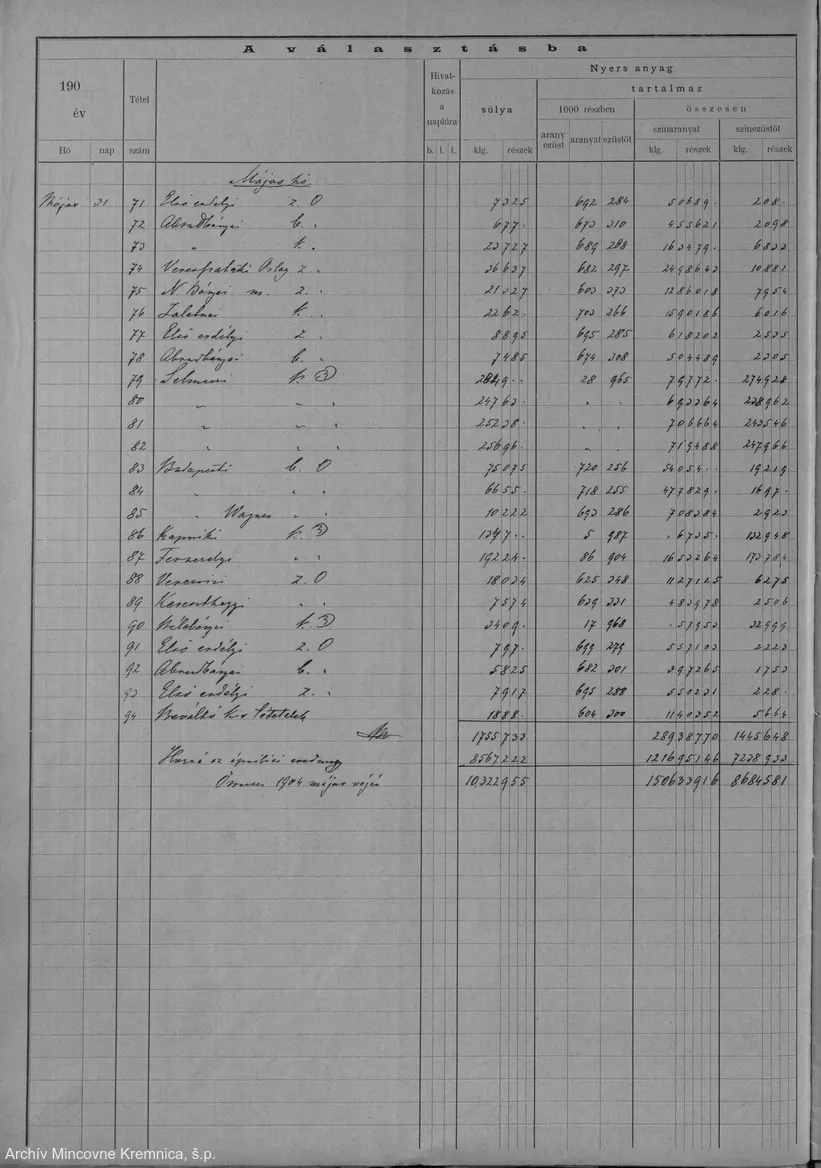 A választásba
190
év
Hó nap
Tétel
szám
Hivat-
kozás
a
naplóra
b. l. t.
Nyers anyag
súlya
klg. részek
tartalmaz
1000 részben
arany
ezüst
aranyat ezüstöt
összesen
színaranyat
klg. részek
színezüstöt
klg. részek
Május hó.
Május 31 71 Első erdélyi z. O 7325 692 284 50689. 208.
72 Abrudbányai b. „ 677. 673 310 455621 2098
73 „ k. „ 23727 689 288 163479. 6833
74 Verespataki Orlay z. „ 36637 682 297 2498643 10881
75 N Bányai m. z. „ 21327 603 373 1286018 7954
76 Zalatnai k. „ 2262. 703 266 1590186 6016
77 Első erdélyi z. „ 8895 695 285 618202 2535
78 Abrudbányai b. „ 7485 674 308 504489 2305
79 Selmeci k. 3 2849.. 28 965 79772. 274928
80 „ „ „ 24763. „ „ 693364 238962
81 „ „ „ 25238. 706664 243546
82 „ „ „ 25696. „ „ 719488 247966
83 Budapesti b. O 75075 720 256 54054.. 19219
84 „ „ „ 6655. 718 255 477829. 1697.
85 „ Wagner „ „ 10222 693 286 708384 2923
86 Kapniki k. 3 1347.. 5 987 .6735. 132948
87 Fernezelyi „ „ 19224. 86 904 1653264 173784
88 z. O 18034 625 348 1127125 6275
89 „ „ 7574 639 331 483978 2506
90 Bélabányai k. 3 3409. 17 968 .57953 32999
91 Első erdélyi z. O 797. 699 279 557103 2223
92 Abrudbányai b. „ 5825 682 301 397265 1753
93 Első erdélyi z. „ 7917 695 288 550231 228.
94 Beváltó k. v. tételek 1888. 604 300 1140352 5664
1755733 28938770 1445648
Hozzá az áprilisi eredmény 8567222 121695146 7238933
Összesen 1904 május végén 10322955 150633916 8684581
Archív Mincovne Kremnica, š.p.